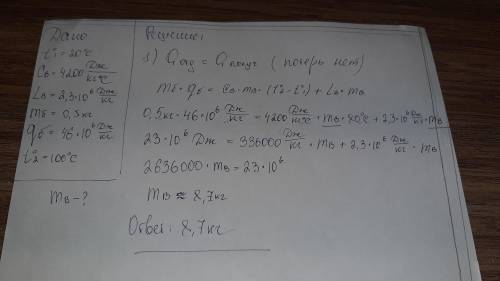 Дано
t°₁ = 20°C
Cв = 4200 Дж/кг·°C
Lв = 2,3·10⁶ Дж/кг
mб = 0,5кг
qб = 46·10⁶ Дж/кг
t°₂ = 100°C
mв - ?
Решение:
1) Qотд = Qполуч (потерь нет)
mб · qб = Cв · mв · (t°₂ - t°₁) + Lв · mв
0,5кг · 46·10⁶ Дж/кг = 4200 Дж/кг·°C · mв · 80°C + 2,3·10⁶ Дж/кг · mв
23·10⁶ Дж = 336000 Дж/кг · mв + 2,3·10⁶ Дж/кг · mв
2636000 · mв = 23·10⁶
mв ≈ 8,7кг
Ответ: 8,7кг